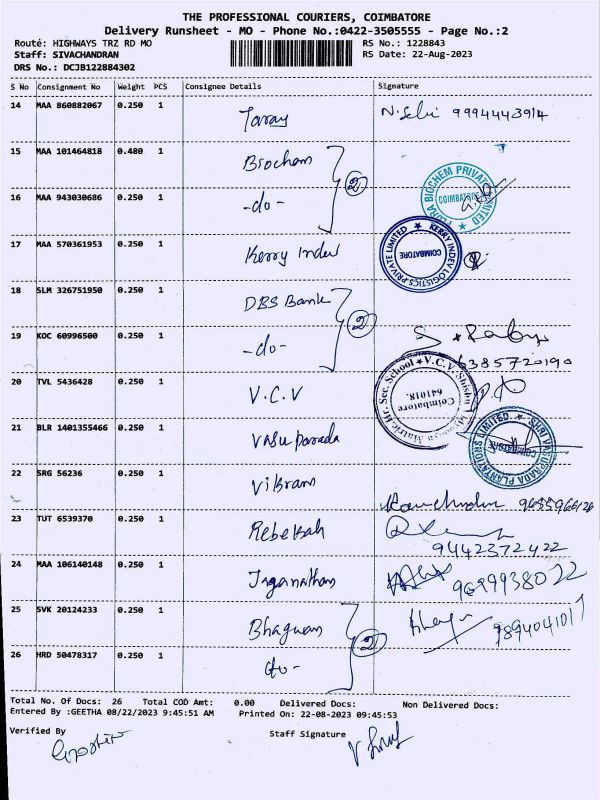 THE PROFESSIONAL COURIERS, COIMBATORE
Delivery Runsheet - MO - Phone No.:0422-3505555 - Page No.:2
Route: HIGHWAYS TRZ RD MO
RS No.: 1228843
Staff: SIVACHANDRAN
RS Date: 22-Aug-2023
DRS No.: DCJB122884302
S No Consignment No Weight PCS Consignee Details Signature
14 MAA 860882067 0.250 1 9994443914
15 MAA 101464818 0.480 1 Biochem 2
BIOCHEM PRIVATE LIMITED ★ COIMBATORE
16 MAA 943030686 0.250 1 -do-
17 MAA 570361953 0.250 1 Kerry Indev
KERRY INDEV LOGISTICS PRIVATE LIMITED ★ COIMBATORE
18 SLM 326751950 0.250 1 DBS Bank 2
19 KOC 60996500 0.250 1 -do- 6385720190
20 TVL 5436428 0.250 1 V.C.V
V.C.V. Shishu Matric. Hr. Sec. School ★ Coimbatore 641018.
21 BLR 1401355466 0.250 1 Vasuprada
SHRI VASUPRADA PLANTATIONS LIMITED. ★ COIMBATORE
22 SRG 56236 0.250 1 Vikram
23 TUT 6539370 0.250 1 Rebekah 9442372422
24 MAA 106140148 0.250 1 Jaganathan 9699938022
25 SVK 20124233 0.250 1 Bhagwan 2 9894041017
26 HRD 50478317 0.250 1 do-
Total No. Of Docs: 26 Total COD Amt: 0.00 Delivered Docs: Non Delivered Docs:
Entered By :GEETHA 08/22/2023 9:45:51 AM Printed On: 22-08-2023 09:45:53
Verified By Staff Signature